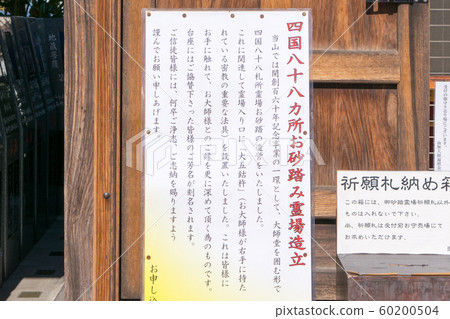 四国八十八カ所お砂踏み霊場造立
当山では開創百六十年記念事業の一環として、大師堂を囲む形で
四国八十八札所霊場お砂踏の造営をいたしました。
これに関連して霊場入り口に、大五鈷杵(お大師様が右手に持た
れている密教の重要な法具)を設置いたしました。これは皆様に
お手に触れて、お大師様とのご縁を更に深めて頂く為のものです。
台座にはご協賛下さった皆様のご芳名が刻名されます。
ご信徒皆様には、何卒ご浄志、ご志納を賜りますよう
謹んでお願い申しあげます。
お申し込
祈願札納め箱
この箱には、御砂踏霊場祈願札以外
ものは入れないで下さい。
尚、祈願札は受付前お守売場にて
お求めいただけます。
123RF
60200504